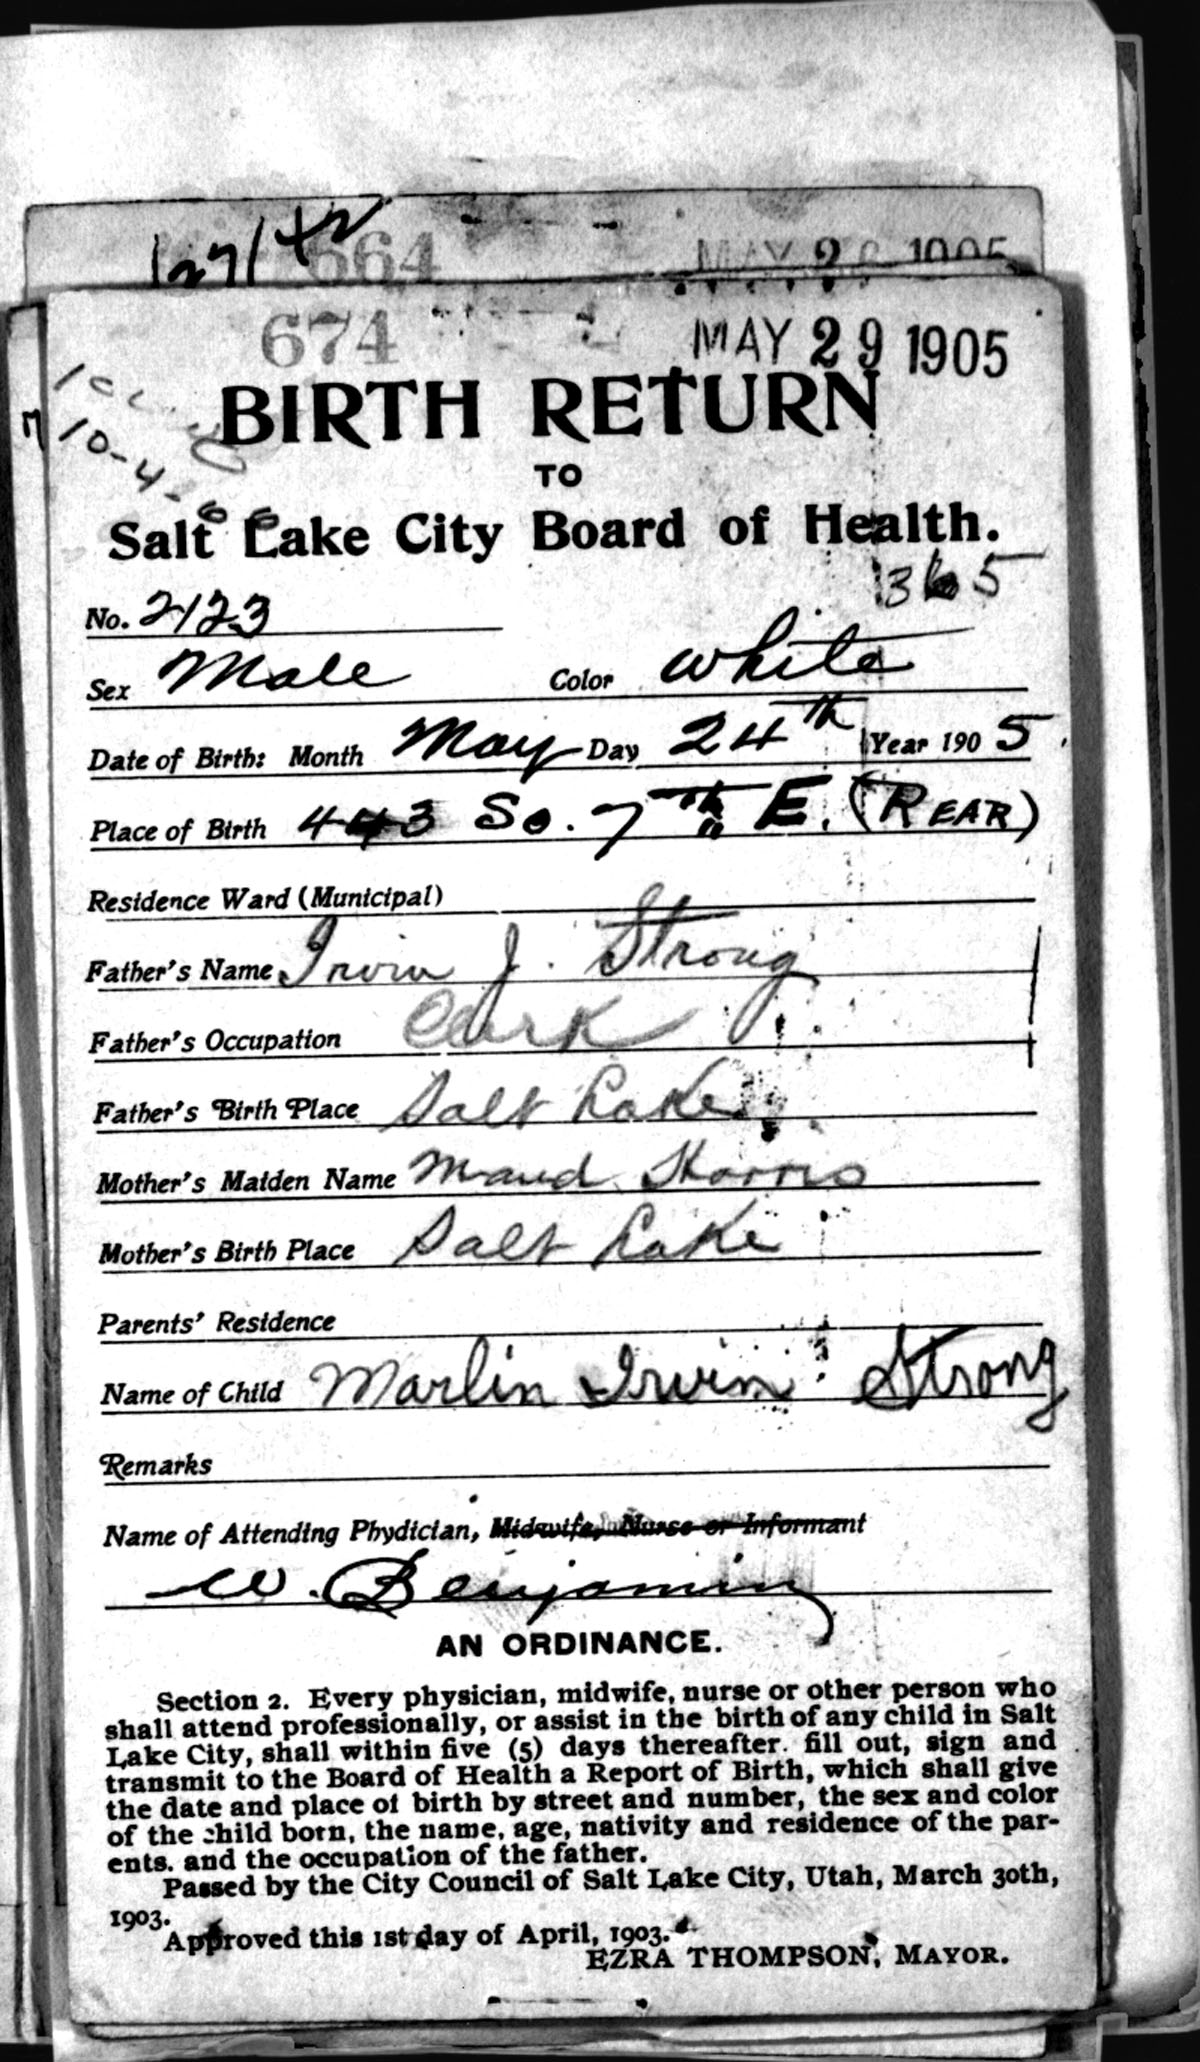 664 MAY 2 1905
674 MAY 29 1905
BIRTH RETURN
10-4-66
TO
Salt Lake City Board of Health.
365
No. 2123
Sex Male Color White
Date of Birth: Month May Day 24th Year 1905
Place of Birth 443 So. 7th E. (REAR)
Residence Ward (Municipal)
Father's Name Irvin J. Strong
Father's Occupation Clerk
Father's Birth Place Salt Lake
Mother's Maiden Name Maud Harris
Mother's Birth Place Salt Lake
Parents' Residence
Name of Child Marlin Irvin Strong
Remarks
Name of Attending Phydician, Midwife, Nurse or Informant
W. Benjamin
AN ORDINANCE.
Section 2. Every physician, midwife, nurse or other person who
shall attend professionally, or assist in the birth of any child in Salt
Lake City, shall within five (5) days thereafter. fill out, sign and
transmit to the Board of Health a Report of Birth, which shall give
the date and place of birth by street and number, the sex and color
of the child born, the name, age, nativity and residence of the par-
ents. and the occupation of the father.
Passed by the City Council of Salt Lake City, Utah, March 30th,
1903.
Approved this 1st day of April, 1903.
EZRA THOMPSON, MAYOR.